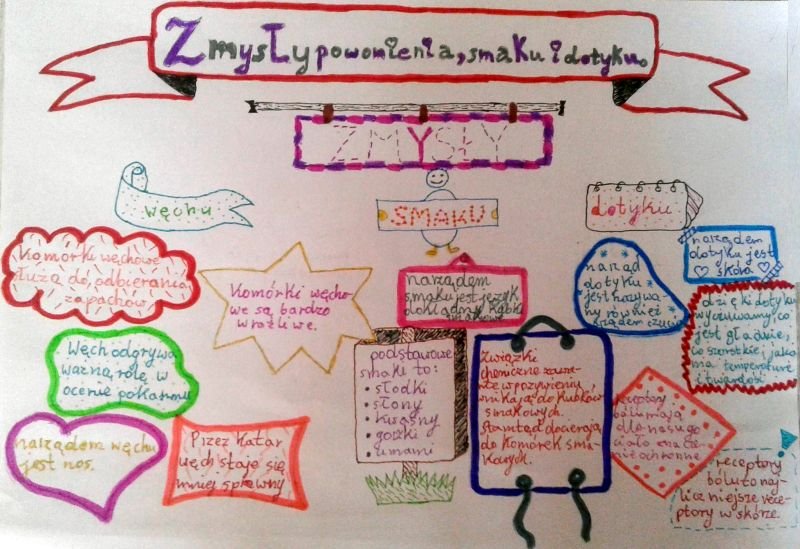 Zmysły powonienia, smaku i dotyku.
ZMYSŁY
węchu
SMAKU
dotyku
Komórki węchowe
służą do odbierania
zapachów.
Komórki węcho-
we są bardzo
wrażliwe.
Węch odgrywa
ważną rolę w
ocenie pokarmu
narządem węchu
jest nos.
Przez katar
węch staje się
mniej sprawny
narządem
smaku jest język
dokładniej kubki
smakowe
podstawowe
smaki to:
• słodki
• słony
• kwaśny
• gorzki
• umami
Związki
chemiczne zawar-
te w pożywieniu
wnikają do kubków
smakowych.
Stamtąd docierają
do komórek sma-
kowych.
narząd
dotyku
jest nazywa-
ny również
narządem
dotyku jest
skóra
dzięki dotyku
wyczuwamy, co
jest gładkie,
co szorstkie i jaką
ma temperaturę
i twardość.
receptory
bólu mają
dla naszego
ciała znacze-
nie ochronne
receptory
bólu to naj-
liczniejsze rece-
ptory w skórze.